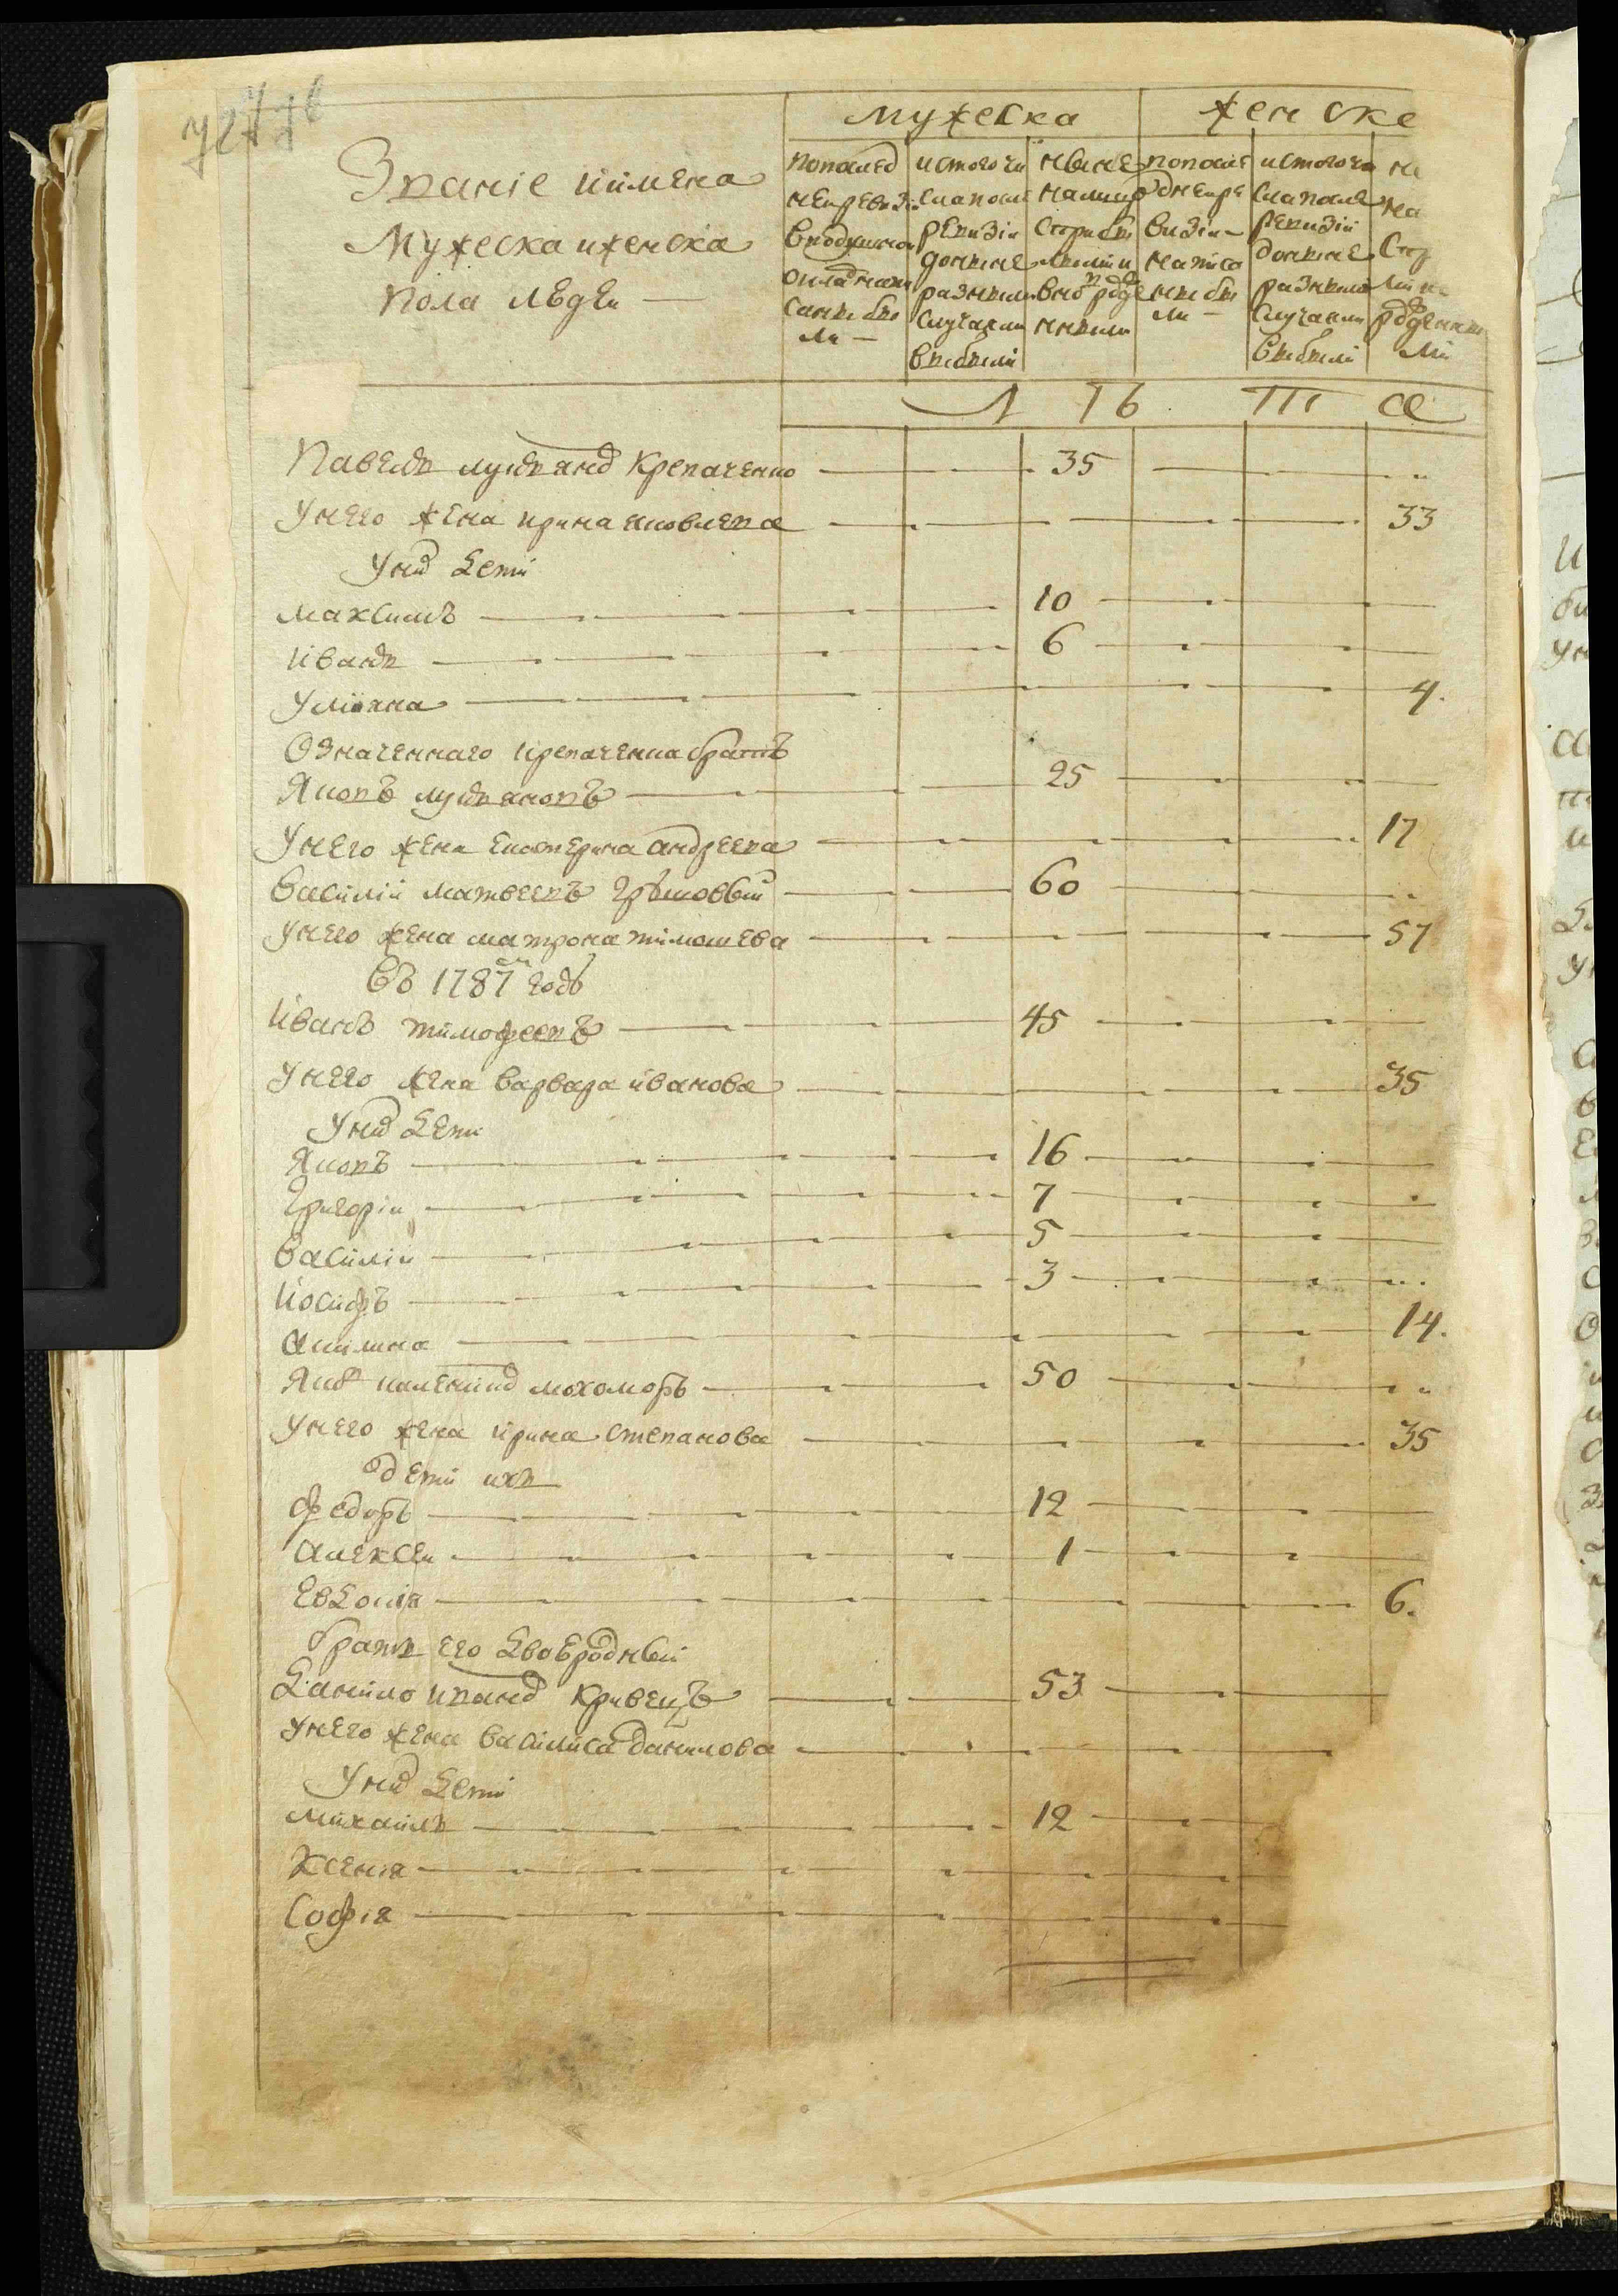 мужеска женске
Званіе иимена
Мужеска иженска
пола людеи
попослед
неиревизіи
вподушном
окладнапи
санны бы
ли
истогочи
слапосле
ревизіи
доныне
разными
случаями
выбыли
ныне
налицо
старыбы
лыми и
вновь рожде
нными
попосле
днеире
визіи
написа
нны бы
ли
истогочи
слапосле
ревизіи
доныне
разными
случаями
выбыли
на
Ста
рожденны
ми
Л ТЬ ТТІ а
Павелъ лукянов Крепаченко 35
Унего жена ирина яковлева 33
Уних дети
Максимъ 10
Иванъ 6
Уліяна 4.
Означеннаго крепаченка братъ
Яковъ лукяновъ 25
Унего жена Екатерина андреева 17
Василій матвеевъ 60
Унего жена матрона тимошева 57
Въ 1787 годѣ
Иванъ тимофеевъ 45
Унего жена варвара иванова 35
Уних дети
Яковъ 16
Григоріи 7
Василіи 5
Иосифъ 3
Акилина 14.
Яков мохоморъ 50
Унего жена ирина степанова 35
дети ихъ
Федоръ 12
Алексеи 1
Евдокія 6.
братъ его двоеродный
Данило иванов Кривецъ 53
Унего жена василиса данилова
Уних дети
Михаилъ 12
Ксенія
Софія